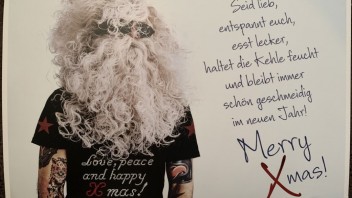 Seid lieb,
entspannt euch,
esst lecker,
haltet die Kehle feucht
und bleibt immer
schön geschmeidig
im neuen Jahr!
Merry
Xmas!
Love, peace
and happy
X mas!